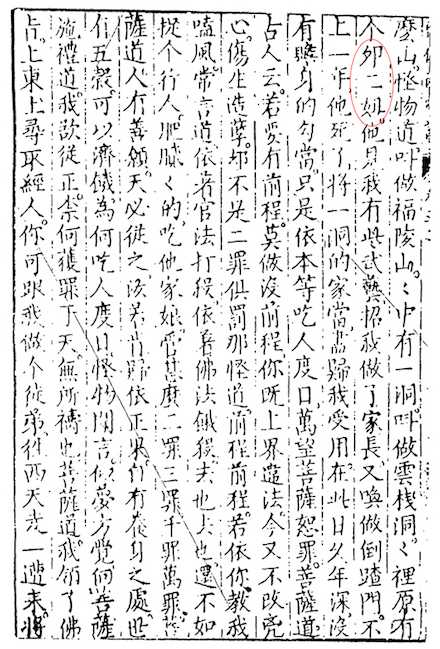 麼山怪物道叫做福陵山〻中有一洞叫做雲棧洞〻裡原有
个夘二姐他見我有些武藝招我做了家長又喚做倒蹅門不
上一年他死了將一洞的家當盡歸我受用在此日久年深沒
有贍身的勾當只是依本等吃人度日萬望菩薩恕罪菩薩道
古人云若要有前程莫做沒前程你既上界違法今又不改兇
心傷生造孽却不是二罪俱罰那怪道前程前程若依你教我
嗑風常言道依着官法打殺依着佛法餓殺去也去也還不如
捉个行人肥膩〻的吃他家娘管甚麼二罪三罪千罪萬罪菩
薩道人有善願天必從之汝若肯歸依正果自有養身之處世
有五穀可以濟饑為何吃人度日怪物聞言似夢方覺向菩薩
施禮道我欲從正奈何獲罪于天無所禱也菩薩道我領了佛
旨上東土尋取經人你可跟我做个徒弟往西天走一遭來將